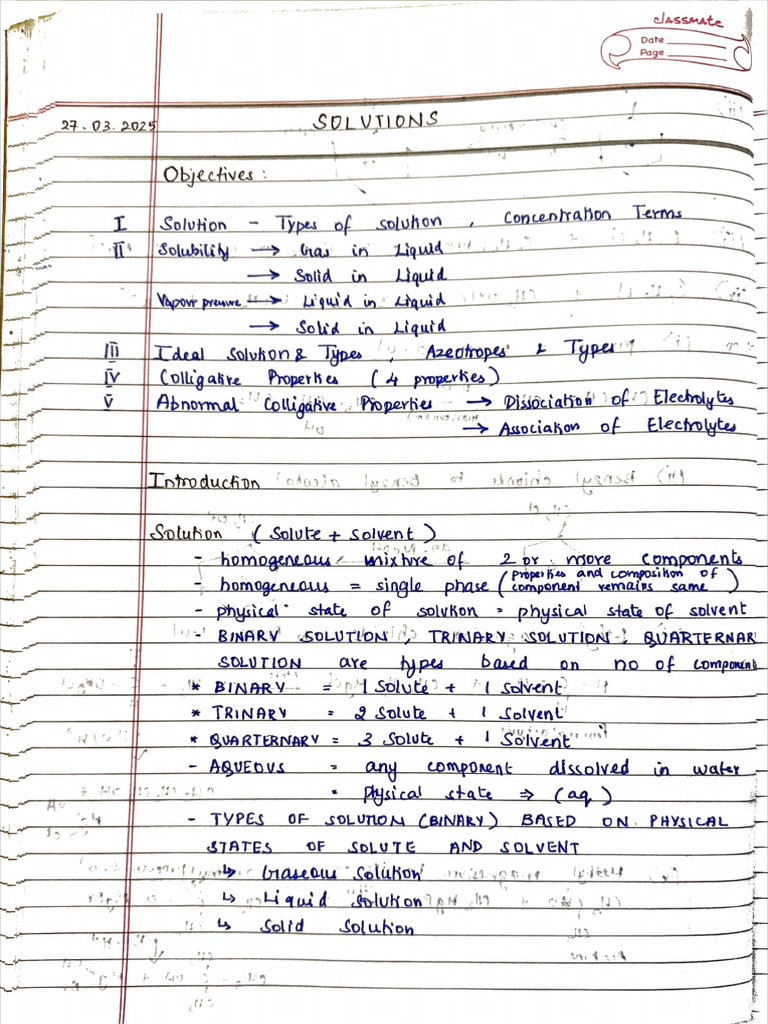 classmate
Date
Page
27.03.2025 SOLUTIONS
Objectives :
I Solution - Types of solution , Concentration Terms
II Solubility → Gas in Liquid
→ Solid in Liquid
Vapour pressure → Liquid in Liquid
→ Solid in Liquid
III Ideal Solution & Types , Azeotropes & Types
IV Colligative Properties ( 4 properties )
V Abnormal Colligative Properties → Dissociation of Electrolytes
→ Association of Electrolytes
Introduction
Solution ( Solute + Solvent )
- homogeneous mixture of 2 or more components
- homogeneous = single phase ( properties and composition of
component remains same )
- physical state of solution = physical state of solvent
- BINARY SOLUTION , TRINARY SOLUTION , QUARTERNAR
SOLUTION are types based on no of component
* BINARY = 1 Solute + 1 Solvent
* TRINARY = 2 Solute + 1 Solvent
* QUARTERNARY = 3 Solute + 1 Solvent
- AQUEOUS = any component dissolved in water
= Physical state ⇒ (aq)
- TYPES OF SOLUTION (BINARY) BASED ON PHYSICAL
STATES OF SOLUTE AND SOLVENT
↳ Gaseous Solution
↳ Liquid Solution
↳ Solid Solution